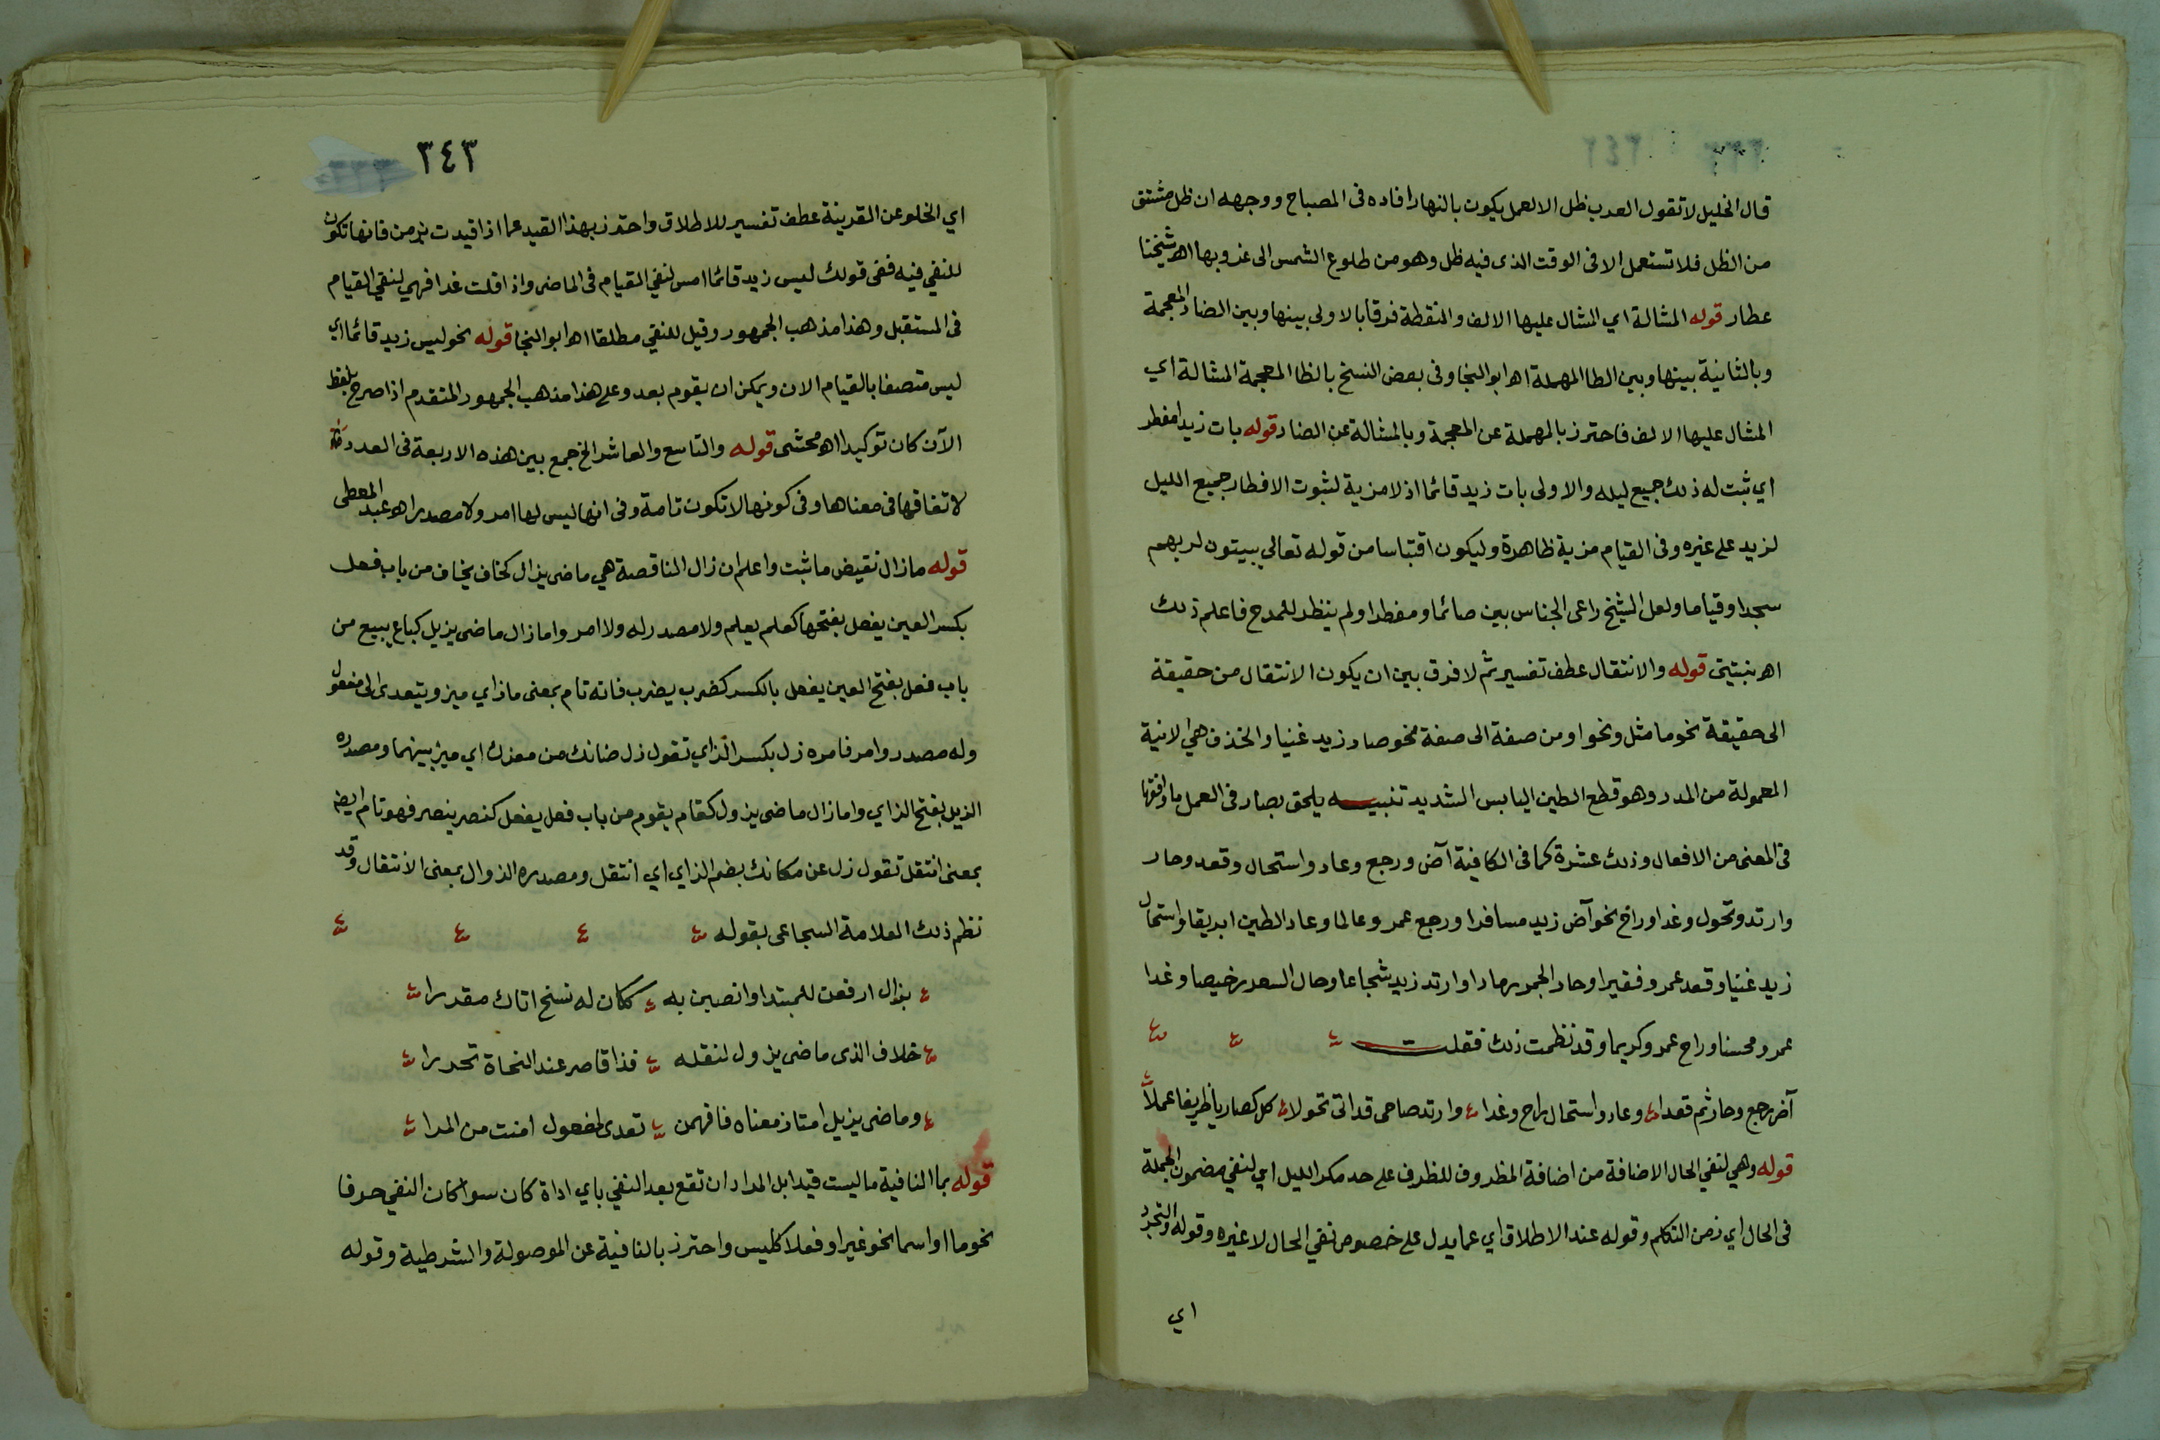 قال الخليل لا تقول العرب ظل الا لعمل يكون بالنهار افاده فى المصباح ووجهه ان ظل مشتق
من الظل فلا تستعمل الا فى الوقت الذى فيه ظل وهو من طلوع الشمس الى غروبها اهر شيخنا
عطار قوله المشالة اي المشال عليها الالف والنقطة فرقا بالاولى بينها وبين الضاد المعجمة
وبالثانية بينها وبين الطا المهملة اهر ابو النجا وفى بعض النسخ بالظا المعجمة المشالة اي
المشال عليها الالف فاحترز بالمهملة عن المعجمة وبالمشالة عن الضاد قوله بات زيد مفطرا
اي ثبت له ذلك جميع ليله والاولى بات زيد قائما اذ لا مزية لثبوت الافطار جميع الليل
لزيد على غيره وفى القيام مزية ظاهرة وليكون اقتباسا من قوله تعالى يبيتون لربهم
سجدا وقياما ولعل الشيخ راعى الجناس بين صائما ومفطرا ولم ينظر للمدح فاعلم ذلك
اهر نبتيتى قوله والانتقال عطف تفسير ثم لا فرق بين ان يكون الانتقال من حقيقة
الى حقيقة نحو ما مثل ونحو او من صفة الى صفة نحو صار زيد غنيا والخذف هي الانية
المعمولة من المدر وهو قطع الطين اليابس الشديد تنبيه يلحق بصار فى العمل ما وافقها
فى المعنى من الافعال وذلك عشرة كما فى الكافية آض ورجع وعاد واستحال وقعد وحار
وارتد وتحول وغدا وراح نحو آض زيد مسافرا ورجع عمرو عالما وعاد الطين ابريقا واستحال
زيد غنيا وقعد عمرو فقيرا وحار الجمر رمادا وارتد زيد شجاعا وحال السعر رخيصا وغدا
عمرو محسنا وراح عمرو كريما وقد نظمت ذلك فقلت
آض رجع وحار ثم قعدا وعاد واستحال راح وغدا وارتد صاحى قد اتى تحولا كل كصار يا ظريفا عملا
قوله وهي لنفي الحال الاضافة من اضافة المظروف للظرف على حد مكر الليل اي لنفي مضمون الجملة
فى الحال اي زمن التكلم وقوله عند الاطلاق اي عما يدل على خصوص نفي الحال لا غيره وقوله والتجرد
اي
٣٤٣
اي الخلو عن القرينة عطف تفسير للاطلاق واحترز بهذا القيد عما اذا قيدت بزمن فانها تكون
للنفي فيه ففى قولك ليس زيد قائما امس لنفي القيام فى الماضى واذا قلت غدا فهي لنفي القيام
فى المستقبل وهذا مذهب الجمهور وقيل للنفي مطلقا اهر ابو النجا قوله نحو ليس زيد قائما اي
ليس متصفا بالقيام الان ويمكن ان يقوم بعد وعلى هذا مذهب الجمهور المتقدم اذا صرح بلفظ
الآن كان توكيدا اهر محشى قوله والتاسع والعاشر الخ جمع بين هذه الاربعة فى العدد
لاتفاقها فى معناها وفى كونها لا تكون تامة وفى انها ليس لها امر ولا مصدر اهر عبد المعطى
قوله ما زال نقيض ما ثبت واعلم ان زال الناقصة هي ماضى يزال كخاف يخاف من باب فعل
بكسر العين يفعل بفتحها كعلم يعلم ولا مصدر له ولا امر واما زال ماضى يزيل كباع يبيع من
باب فعل بفتح العين يفعل بالكسر كضرب يضرب فانه تام بمعنى ماز اي ميز ويتعدى الى مفعول
وله مصدر وامر فامره زل بكسر الزاي تقول زل ضانك من معزك اي ميز بينهما ومصدره
الزيل بفتح الزاي واما زال ماضى يزول كقام يقوم من باب فعل يفعل كنصر ينصر فهو تام ايضا
بمعنى انتقل تقول زل عن مكانك بضم الزاي اي انتقل ومصدره الزوال بمعنى الانتقال وقد
نظم ذلك العلامة السجاعى بقوله
بزال ارفعن للمبتدا وانصبن به ككان له نسخ اتاك مقدرا
خلاف الذى ماضى يزول لنقله فذا قاصر عند النحاة تحررا
وماضى يزيل امتاز معناه فافهمن تعدى لمفعول امنت من المرا
قوله بما النافية ما ليست قيدا بل المراد ان تقع بعد النفي باي اداة كان سوا كان النفي حرفا
نحو ما او اسما نحو غير او فعلا كليس واحترز بالنافية عن الموصولة والشرطية وقوله